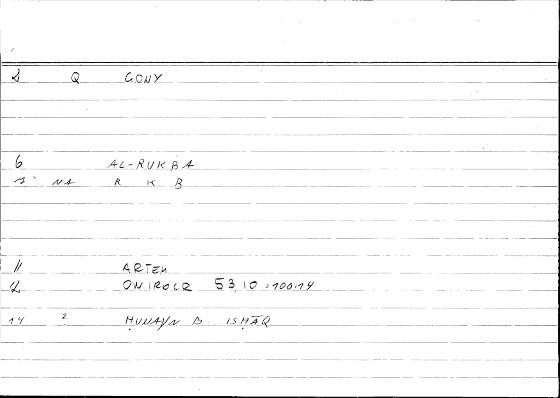 Q GONY
6 AL-RUKBA
NA R K B
11 ARTEM
ONIROCR 53,10 : 100.14
14 2 ḤUNAYN B ISḤĀQ